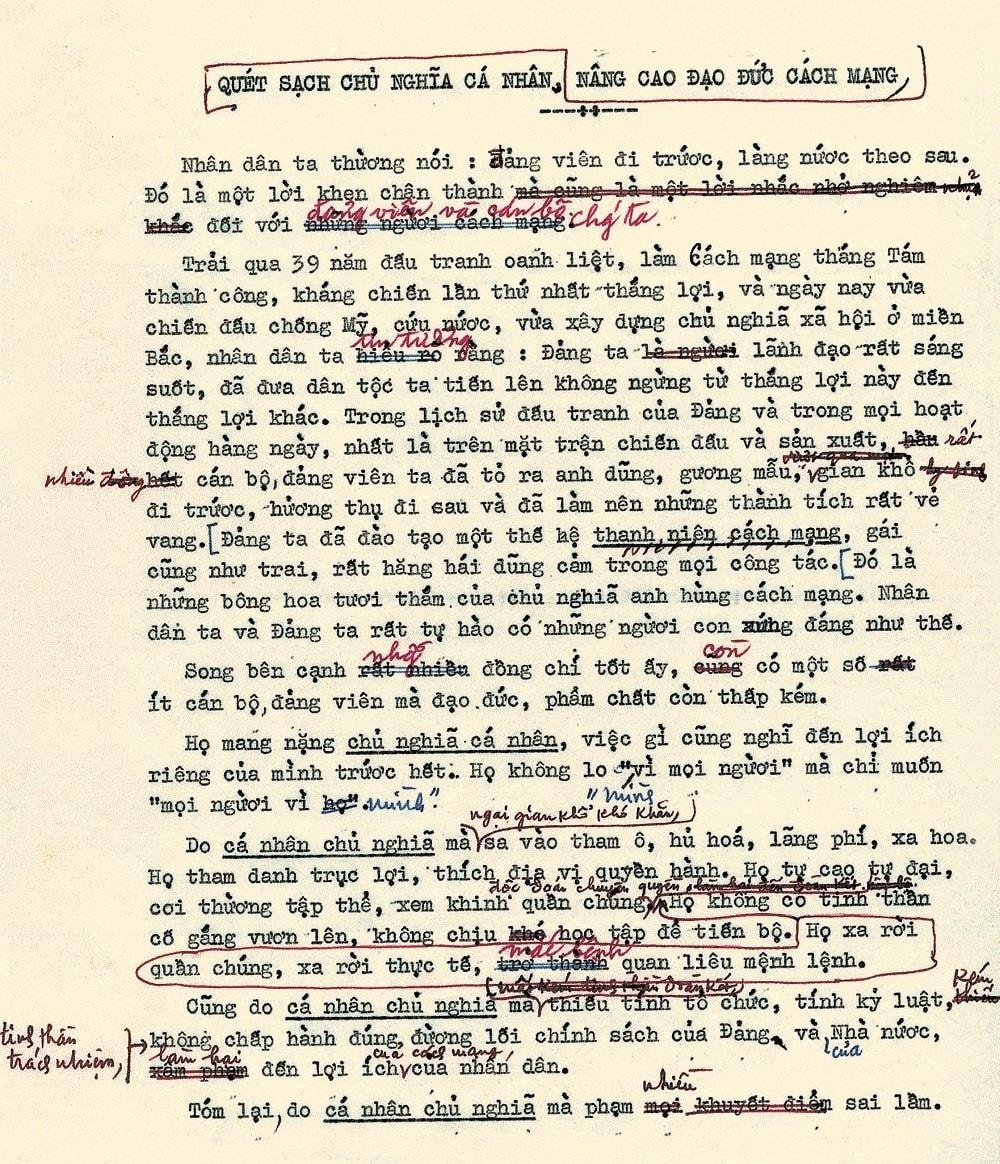 QUÉT SẠCH CHỦ NGHĨA CÁ NHÂN, NÂNG CAO ĐẠO ĐỨC CÁCH MẠNG
Nhân dân ta thường nói : đảng viên đi trước, làng nước theo sau.
Đó là một lời khen chận thành mà cũng là một lời nhắc nhở nghiêm
đảng viên và cán bộ chg ta.
khắc đối với những người cách mạng.
Trải qua 39 năm đấu tranh oanh liệt, làm Cách mạng tháng Tám
thành công, kháng chiến lần thứ nhất thắng lợi, và ngày nay vừa
chiến đấu chống Mỹ, cứu nước, vừa xây dựng chủ nghiã xã hội ở miền
tin tưởng
Bắc, nhân dân ta hiểu rõ rằng : Đảng ta là người lãnh đạo rất sáng
suốt, đã đưa dân tộc ta tiến lên không ngừng từ thắng lợi này đến
thắng lợi khác. Trong lịch sử đấu tranh của Đảng và trong mọi hoạt
động hàng ngày, nhất là trên mặt trận chiến đấu và sản xuất, hầu rất
nhiều hết cán bộ, đảng viên ta đã tỏ ra anh dũng, gương mẫu, gian khổ
đi trước, hưởng thụ đi sau và đã làm nên những thành tích rất vẻ
vang. [Đảng ta đã đào tạo một thế hệ thanh niên cách mạng, gái
cũng như trai, rất hăng hái dũng cảm trong mọi công tác. [Đó là
những bông hoa tươi thắm của chủ nghiã anh hùng cách mạng. Nhân
dân ta và Đảng ta rất tự hào có những người con xứng đáng như thế.
còn
Song bên cạnh rất nhiều đồng chí tốt ấy, cũng có một số rất
ít cán bộ, đảng viên mà đạo đức, phẩm chất còn thấp kém.
Họ mang nặng chủ nghiã cá nhân, việc gì cũng nghĩ đến lợi ích
riêng của mình trước hết. Họ không lo "vì mọi người" mà chỉ muốn
"mình
"mọi người vì họ". mình."
ngại gian khổ khó khăn,
Do cá nhân chủ nghiã mà sa vào tham ô, hủ hoá, lãng phí, xa hoa.
Họ tham danh trục lợi, thích địa vị quyền hành. Họ tự cao tự đại,
độc đoán chuyên quyền,
coi thường tập thể, xem khinh quần chúng. Họ không có tinh thần
cố gắng vươn lên, không chịu khó học tập để tiến bộ. Họ xa rời
mắc bệnh
quần chúng, xa rời thực tế, trở thành quan liêu mệnh lệnh.
mất
Cũng do cá nhân chủ nghiã mà thiếu tính tổ chức, tính kỷ luật, kém
tinh thần trách nhiệm,
không chấp hành đúng đường lối chính sách của Đảng và của Nhà nước,
làm hại của cách mạng,
xâm phạm đến lợi ích của nhân dân.
nhiều
Tóm lại, do cá nhân chủ nghiã mà phạm mọi khuyết điểm sai lầm.